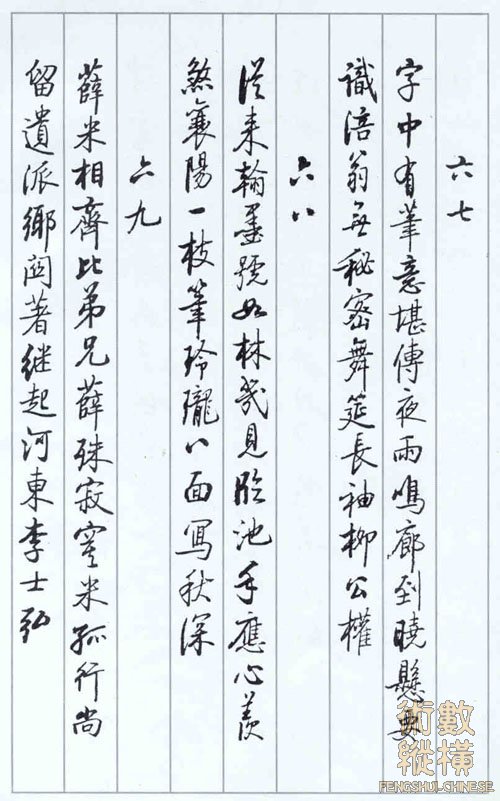 六七
字中有筆意堪傳夜雨鳴廊到曉懸要
識涪翁無秘密舞筵長袖柳公權
六八
從来翰墨號如林幾見臨池手應心羨
煞襄陽一枝筆玲瓏八面寫秋深
六九
薛米相齊比弟兄薛殊寂寞米孤行尚
留遺派鄉閭著继起河東李士弘
術數
縱橫
FENGSHUI-CHINESE